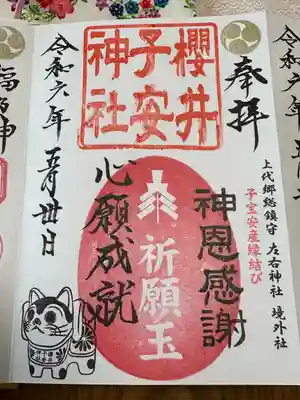 奉拝
上代郷総鎮守 左右神社 境外社
子宝安産縁結び
櫻井
子安
神社
神恩感謝
祈願玉
心願成就
令和六年五月卅日